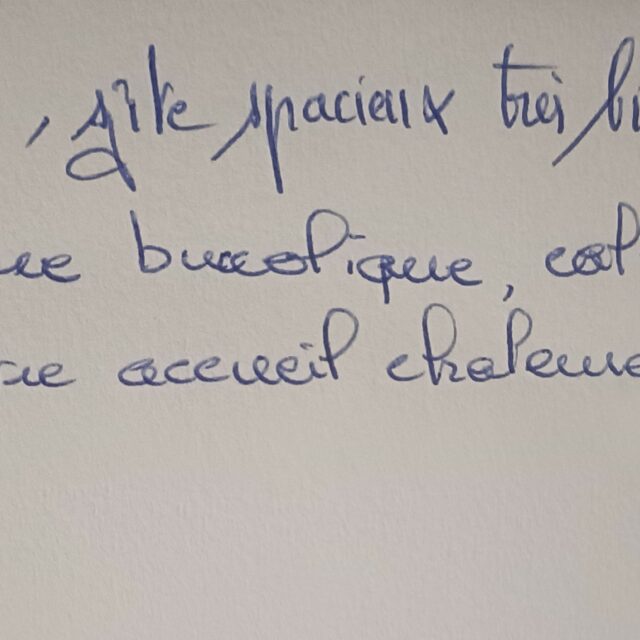 , gîte spacieux très bi
ue bucolique, cal
ue accueil chaleure